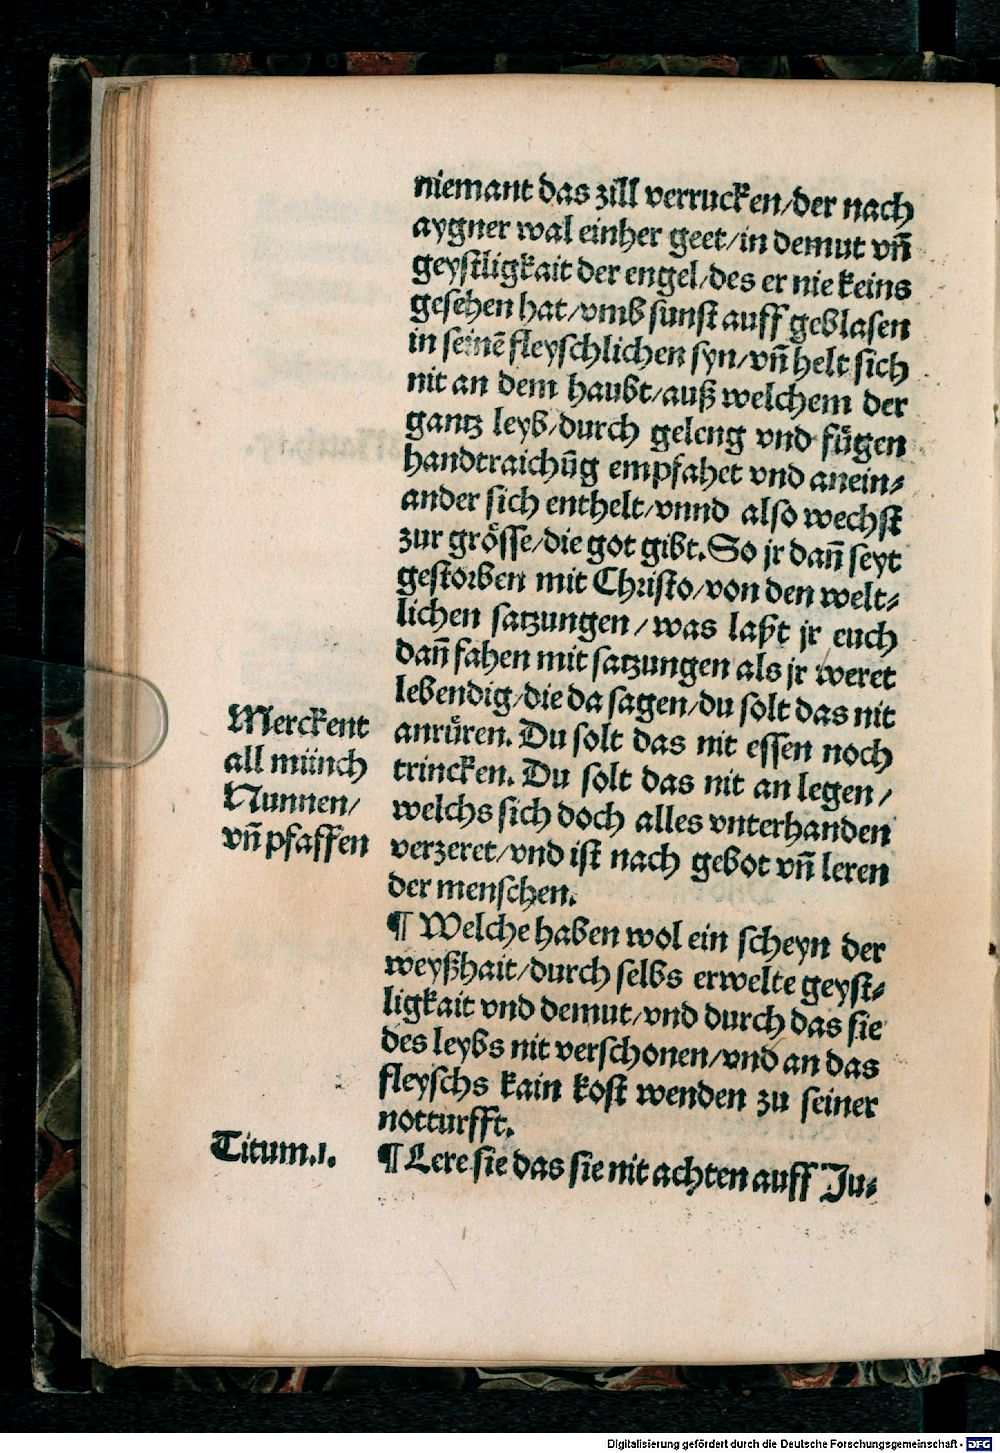 niemant das zill verrucken/der nach
aygner wal einher geet/in demut vñ
geystligkait der engel/des er nie keins
gesehen hat/vmb sunst auff geblasen
in seinē fleyschlichen syn/vñ helt sich
nit an dem haubt/auß welchem der
gantz leyb/durch geleng vnd fuͤgen
handtraichūg empfahet vnd anein⸗
ander sich enthelt/vnnd also wechst
zur groͤsse/die got gibt. So jr dañ seyt
gestorben mit Christo/von den welt⸗
lichen satzungen/was laßt jr euch
dañ fahen mit satzungen als jr weret
lebendig/die da sagen/du solt das nit
anruͤren. Du solt das nit essen noch
trincken. Du solt das nit an legen/
welchs sich doch alles vnterhanden
verzeret/vnd ist nach gebot vñ leren
der menschen.
Merckent
all münch
Nunnen/
vñ pfaffen
¶ Welche haben wol ein scheyn der
weyßhait/durch selbs erwelte geyst⸗
ligkait vnd demut/vnd durch das sie
des leybs nit verschonen/vnd an das
fleyschs kain kost wenden zu seiner
notturfft.
Titum.1.
¶ Lere sie das sie nit achten auff Ju⸗
Digitalisierung gefördert durch die Deutsche Forschungsgemeinschaft - DFG